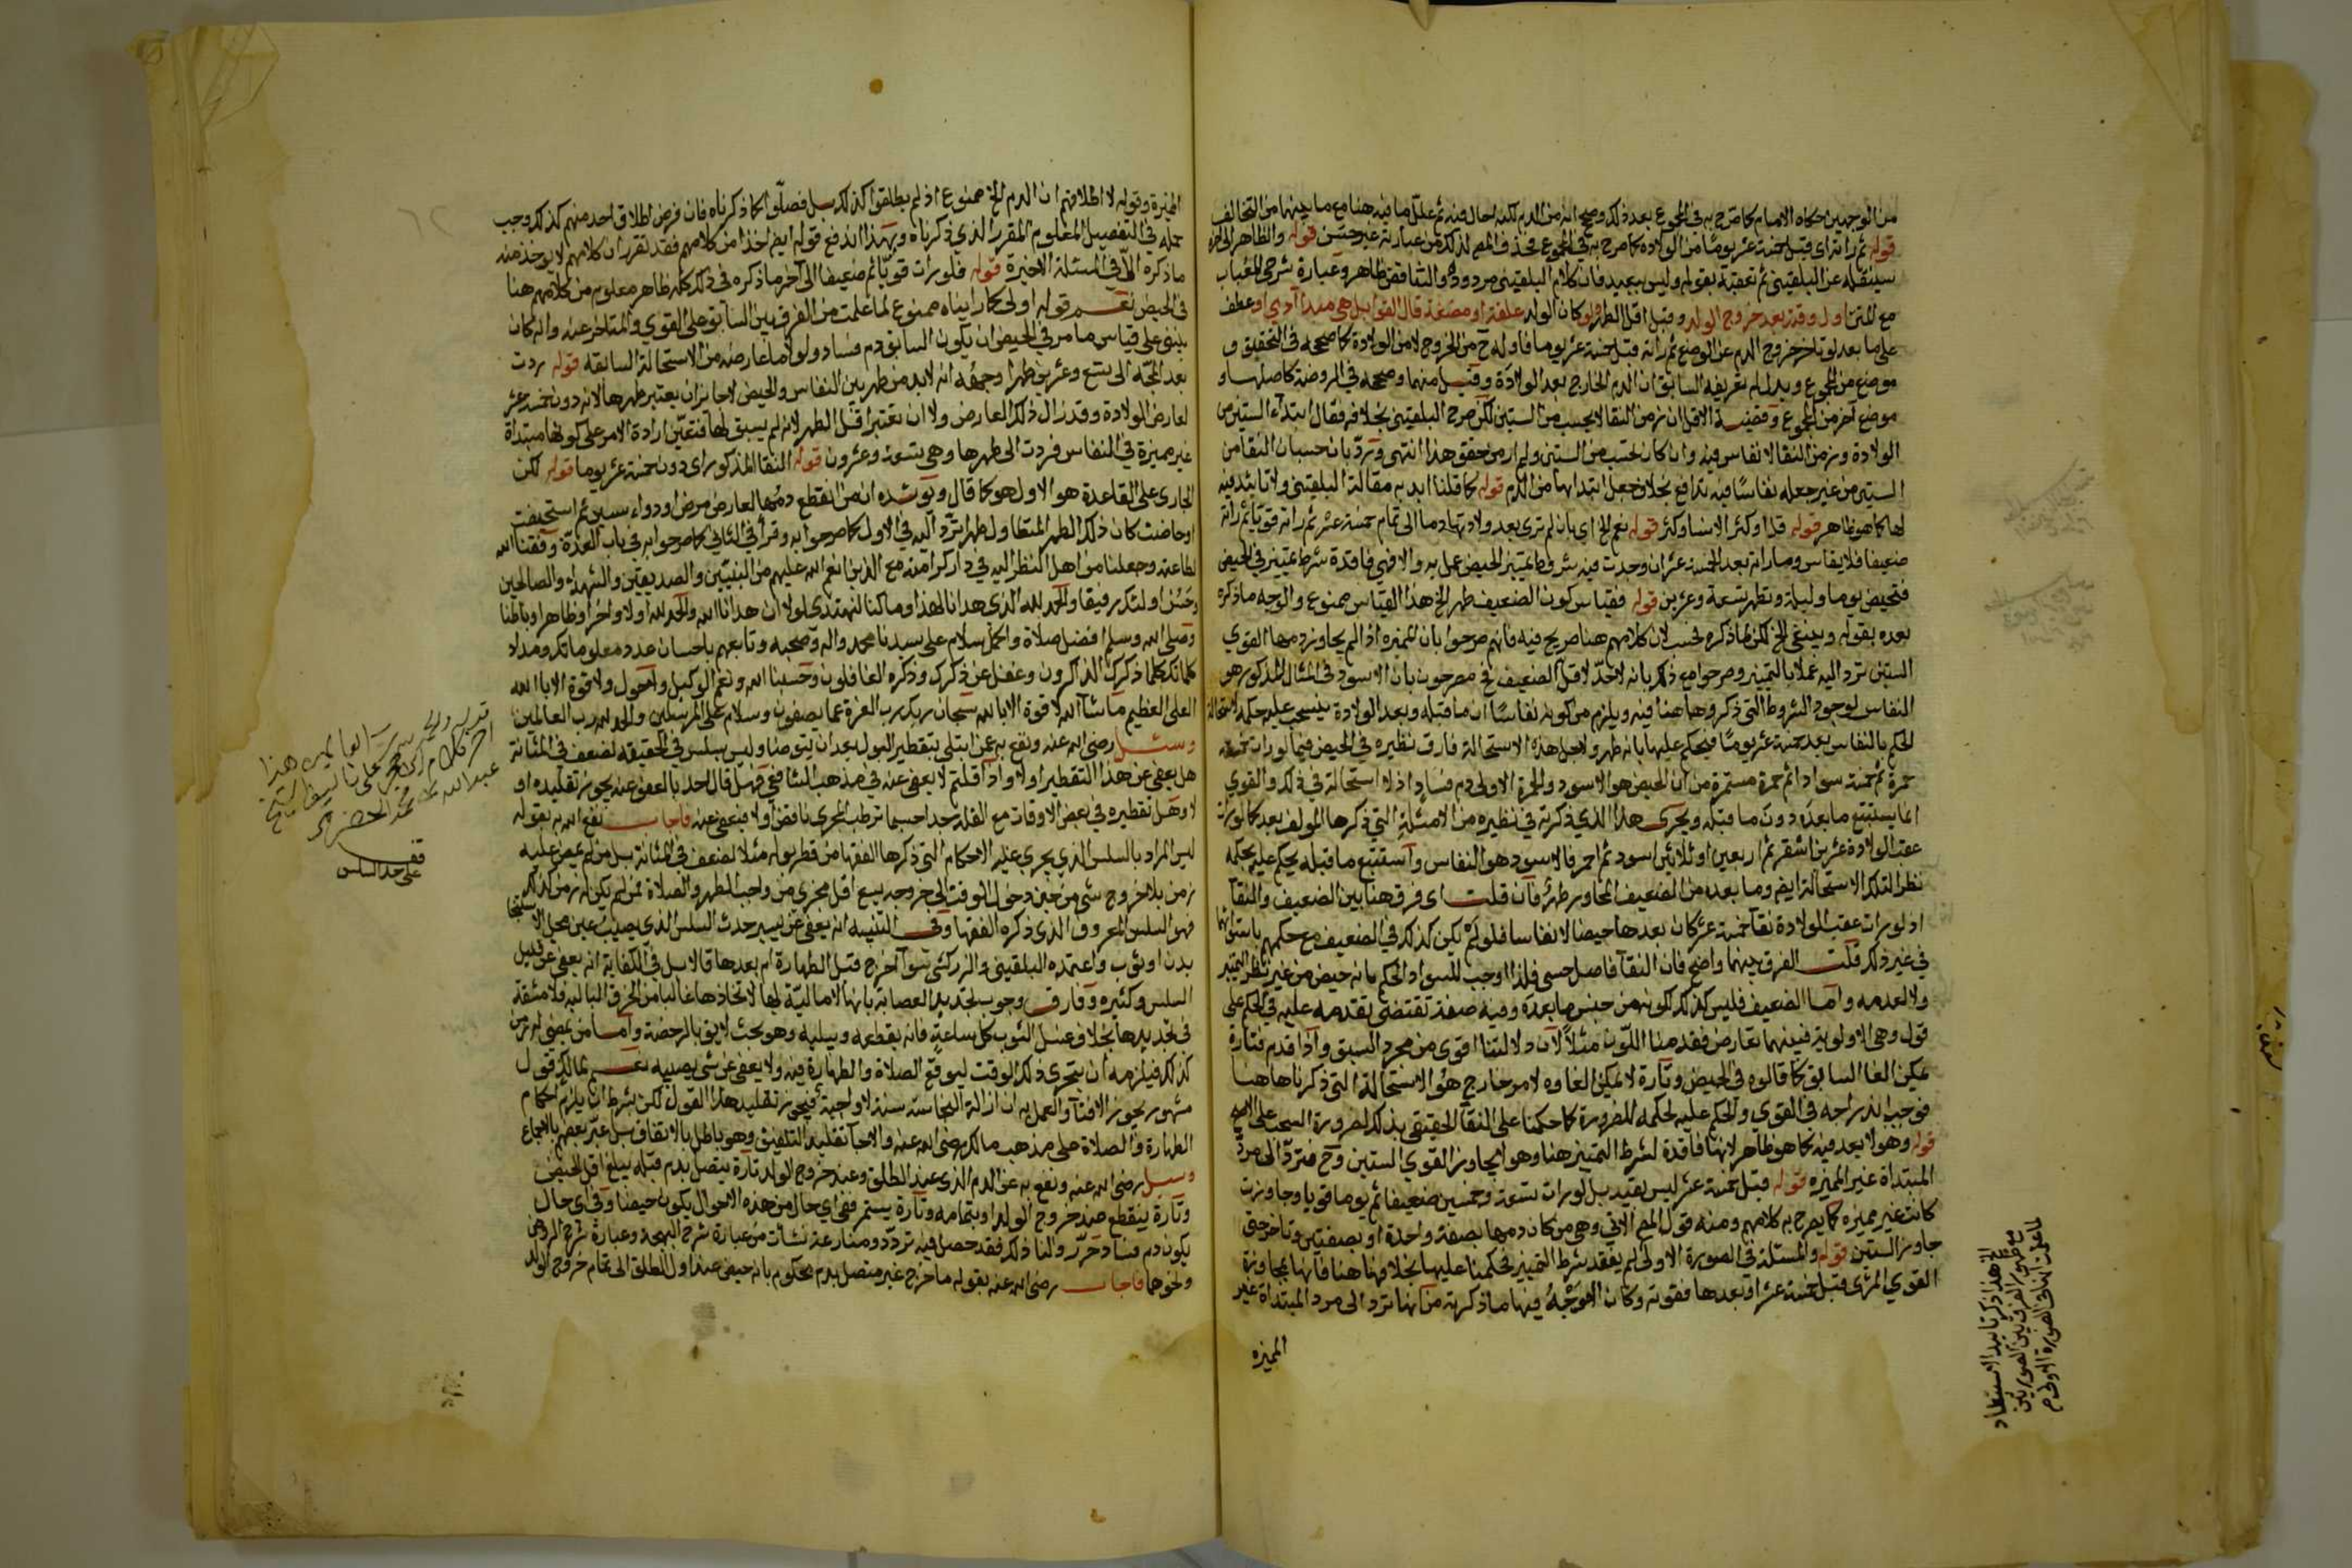 من الوجهين حكاه الامام كما صرح به في المجموع بعد ذلك وصحح انه من الدم لكنه احال فيه ثم علل ما فيه هنا مع ما بينهما من التخالف
قوله ثم راته اي قبل خمسة عشر يوما من الولادة كما صرح به في المجموع فحذف المص لذلك من عبارته غير حسن قوله والظاهر الخ
سينقله عن البلقيني ثم تعقبه بقوله وليس ببعيد فان كلام البلقيني مردود والتناقض ظاهر وعبارة شرحي للعباب
مع المتن اول وقته بعد خروج الولد وقبل اقل الطهر ولو كان الولد علقة او مضغة قال القوابل هي مبدأ ادمي او عطف
على ما بعد لو تاخر خروج الدم عن الوضع ثم راته قبل خمسة عشر يوما فاوله ح من الخروج لا من الولادة كما صححه في التحقيق و
موضع من المجموع ويدل له تعريفه السابق ان الدم الخارج بعد الولادة وقيل منهما وصححه في الروضة كاصلها و
موضع اخر من المجموع وقضية الاول ان زمن النقا لا يحسب من الستين لكن صرح البلقيني بخلافه فقال ابتداء الستين من
الولادة وزمن النقا لا نفاس فيه وان كان يحسب من الستين ولم ار من حقق هذا انتهى ويرد بان حسبان النقا من
الستين من غير جعله نفاسا فيه تدافع بخلاف جعل ابتدائها من الدم قوله كما قلنا ابد به مقالة البلقيني ولا تاييد فيه
لها كما هو ظاهر قوله نعم الخ اي بان لم ترى بعد ولادتها دما الى تمام خمسة عشر ثم راته قويا ثم راته
ضعيفا فلا يقاس وما راته بعد الخمسة عشر ان وجدت فيه شروط تمييز الحيض عمل به والا فهي فاقدة شرط تمييز في الحيض
فتحيض يوما وليلة وتطهر تسعة وعشرين قوله فقياس كون الضعيف طهر الخ هذا القياس ممنوع والوجه ما ذكره
بعده بقوله وينبغي الخ لكن لما ذكره فحسب لان كلامهم هنا صريح فيه فانهم صرحوا بان المميزة اذا لم يجاوز دمها القوي
الستين ترد اليه عملا بالتمييز وصرحوا مع ذلك بانه لا حد لاقل الضعيف فح مصرحون بان الاسود في المثال المذكور هو
النفاس لوجود الشروط التي ذكروها هنا فيه ويلزم من كونه نفاسا ان ما قبله وبعد الولادة ينسحب عليه حكمه لاستحالة
الحكم بالنفاس بعد خمسة عشر يوما فيحكم عليها بانه طهر ولاجل هذه الاستحالة فارق نظيره في الحيض فيما لو رات خمسة
حمرة ثم خمسة سوادا ثم حمرة مستمرة من ان الحيض هو الاسود والحمرة الاولى دم فساد اذ لا استحالة في ذلك والقوي
انما يستتبع ما بعده دون ما قبله ويجري هذا الذي ذكرته في نظيره من الامثلة التي ذكرها المولف بعد كما لو رات
عقب الولادة عشرين اشقر ثم اربعين او ثلاثين اسود ثم احمر فالاسود هو النفاس واستتبع ما قبله يحكم عليه بحكمه
نظرا لتلك الاستحالة ايضا وما بعده من الضعيف المجاوز طهر فان قلت اي فرق هنا بين الضعيف والنقا
اذ لو رات عقب الولادة نقا خمسة عشر كان بعدها حيضا لا نفاسا فلو لم يكن كذلك في الضعيف مع حكمهم باستوائهما
في غير ذلك قلت الفرق بينهما واضح فان النقا فاصل حسي فلذا اوجب للسواد الحكم بانه حيض من غير نظر لتمييز
ولا لعدمه واما الضعيف فليس كذلك لكونه من جنس ما بعده وفيه صفة تقتضي تقدمه عليه في الحكم على
قول وهي الاولوية فبينهما تعارض فقدمنا اللون مثلا لان دلالتنا اقوى من مجرد السبق واذا قدم فتارة
يمكن الغا السابق كما قالوه في الحيض وتارة لا يمكن الغاوه لامر خارج هو الاستحالة التي ذكرناها هنا
فوجب اندراجه في القوي والحكم عليه بحكمه للضرورة كما حكمنا على النقا الحقيقي بذلك لضرورة السحب على الاصح
قوله وهو لا بعد فيه كما هو ظاهر لانها فاقدة لشرط التمييز هنا وهو ان لا يجاوز القوي الستين وح فترد الى مرد
المبتداة غير المميزه قوله قبل خمسة عشر ليس بقيد بل لو رات تسعة وخمسين ضعيفا ثم يوما قويا وجاوزت
كانت غير مميزه كما يصرح به كلامهم ومنه قول المص الاتي وهي من كان دمها بصفة واحدة او بصفتين وتاخر حتى
جاوز الستين قوله والمسئلة في الصورة الاولى لم يفقد شرط التمييز فحكمنا عليها بخلافها هنا فانها بمجاوزة
القوي المرئي قبل خمسة عشر او بعدها فقوته وكان الوجه فيها ما ذكرته من انها ترد الى مرد المبتداة غير
المميزه
الخ هذا ذكر تاييد الاستبعاد
مع ظهور الفرق بين الصورتين
لما علمت انها في الصورة الاولى م
المميزة وقوله لاطلاقهم ان الدم الخ ممنوع اذ لم يطلقوا كذلك بل فصلوا كما ذكرناه فان فرض اطلاق احد منهم كذلك وجب
حمله في التفصيل المعلوم المقرر الذي ذكرناه وبهذا اندفع قوله ايضا اخذا من كلامهم فقد تقرر ان كلامهم لا يوخذ منه
ما ذكره الا في المسئلة الاخيرة قوله فلو رات قويا ثم ضعيفا الى اخر ما ذكره في ذلك كله ظاهر معلوم من كلامهم هنا
في الحيض نعم قوله اولى كما رايناه ممنوع لما علمت من الفرق بين السابق على القوي والمتاخر عنه وانه كان
ينبغي على قياس ما مر في الحيض ان يكون السابق دم فساد ولولا ما عارضه من الاستحالة السابقه قوله ردت
بعد المجة الى تسع وعشرين طهرا وجهه انه لا بد من طهر بين النفاس والحيض لا جائز ان يعتبر طهرها لانه دون خمسة عشر
لعارض الولادة وقد زال ذلك العارض ولا ان تعتبر اقل الطهر لانه لم يسبق لها فتعين ارادة الامر على كونها مبتداة
غير مميزة في النفاس فردت الى طهرها وهي تسعة وعشرون قوله النقا المذكور اي دون خمسة عشر يوما قوله لكن
الجاري على القاعدة هو الاول هو كما قال ويوشده ان من انقطع دمها لعارض مرض او دواء سنين ثم استحيضت
او حاضت كان ذلك الطهر المتطاول طهرا ترد اليه في الاول كما صرحوا به وقرأ في الثاني كما صرحوا به في باب العدة وفقنا الله
لطاعته وجعلنا من اهل النظر اليه في دار كرامته مع الذين انعم الله عليهم من النبيين والصديقين والشهداء والصالحين
وحسن اولئك رفيقا والحمد لله الذي هدانا لهذا وما كنا لنهتدي لولا ان هدانا الله والحمد لله اولا واخرا وظاهرا وباطنا
وصلى الله وسلم افضل صلاة واكمل سلام على سيدنا محمد واله وصحبه وتابعيهم باحسان عدد معلوماتك ومداد
كلماتك كلما ذكرك الذاكرون وغفل عن ذكرك وذكره الغافلون وحسبنا الله ونعم الوكيل ولا حول ولا قوة الا بالله
العلي العظيم ما شا الله لا قوة الا بالله سبحان ربك رب العزة عما يصفون وسلام على المرسلين والحمد لله رب العالمين
وسئل رضي الله عنه ونفع به عمن ابتلي بتقطير البول بعد ان يتوضا وليس بسلس في الحقيقه لضعف في المثانة
هل يعفى عن هذا التقطير اولا واذا قلتم لا يعفى عنه في مذهب الشافعي فهل قال احد بالعفو عنه يجوز تقليده او
لا وهل تقطيره في بعض الاوقات مع القلة جدا حسبما ترطب المجرى ناقض اولا فيعفى عنه فاجاب نفع الله به بقوله
ليس المراد بالسلس الذي يجري عليه الاحكام التي ذكرها الفقها من قطر بوله مثلا لضعف في المثانة بل من لم يمض عليه
زمن بلا خروج شي من حين دخول الوقت الى خروجه يسع اقل مجزى من واجب الطهر والصلاة فمن لم يكن له زمن كذلك
فهو السلس المعروف الذي ذكره الفقها وفي التنبيه انه يعفى عن يسير حدث السلس الذي يصيب عن محل الاستنجا
بدن او ثوب واعتمده البلقيني والزركشي سوا اخرج قبل الطهارة ام بعدها قالا بل في الكفاية انه يعفى عن قليل
السلس وكثيره وفارق وجوب تجديد العصابة بانها الامالية لها لاتخاذها غالبا من الخرق البالية فلا مشقة
في تجديدها بخلاف غسل الثوب كل ساعة فانه يقطعه ويبليه وهو بحث لايق بالرخصة واما من يمضي له زمن
كذلك فيلزمه ان يتحرى ذلك الوقت ليوقع الصلاة والطهارة فيه ولا يعفى عن شي يصيبه نعم لمالك قول
مشهور يجوز الافتا والعمل به ان ازالة النجاسة سنة لا واجبة فيجوز تقليد هذا القول لكن بشرط ان يلزم احكام
الطهارة والصلاة على مذهب مالك رضي الله عنه والا جا تقليد التلفيق وهو باطل بالاتفاق بل عبر بعضهم بالاجماع
وسئل رضي الله عنه ونفع به عن الدم الذي عند الطلق وعند خروج الولد تارة يتصل بدم قبله يبلغ اقل الحيض
وتارة ينقطع عند خروج الولد او بتمامه وتارة يستمر ففي اي حال من هذه الاحوال يكون حيضا وفي اي حال
يكون دم فساد حرر والنا ذلك فقد حصل فيه تردد ومنازعة نشات من عبارة شرح البهجة وعبارة شرح الروض
ونحوهما فاجاب رضي الله عنه بقوله ما خرج غير متصل بدم محكوم بانه حيض عند اول الطلق الى تمام خروج الولد
قف
على حد السلس